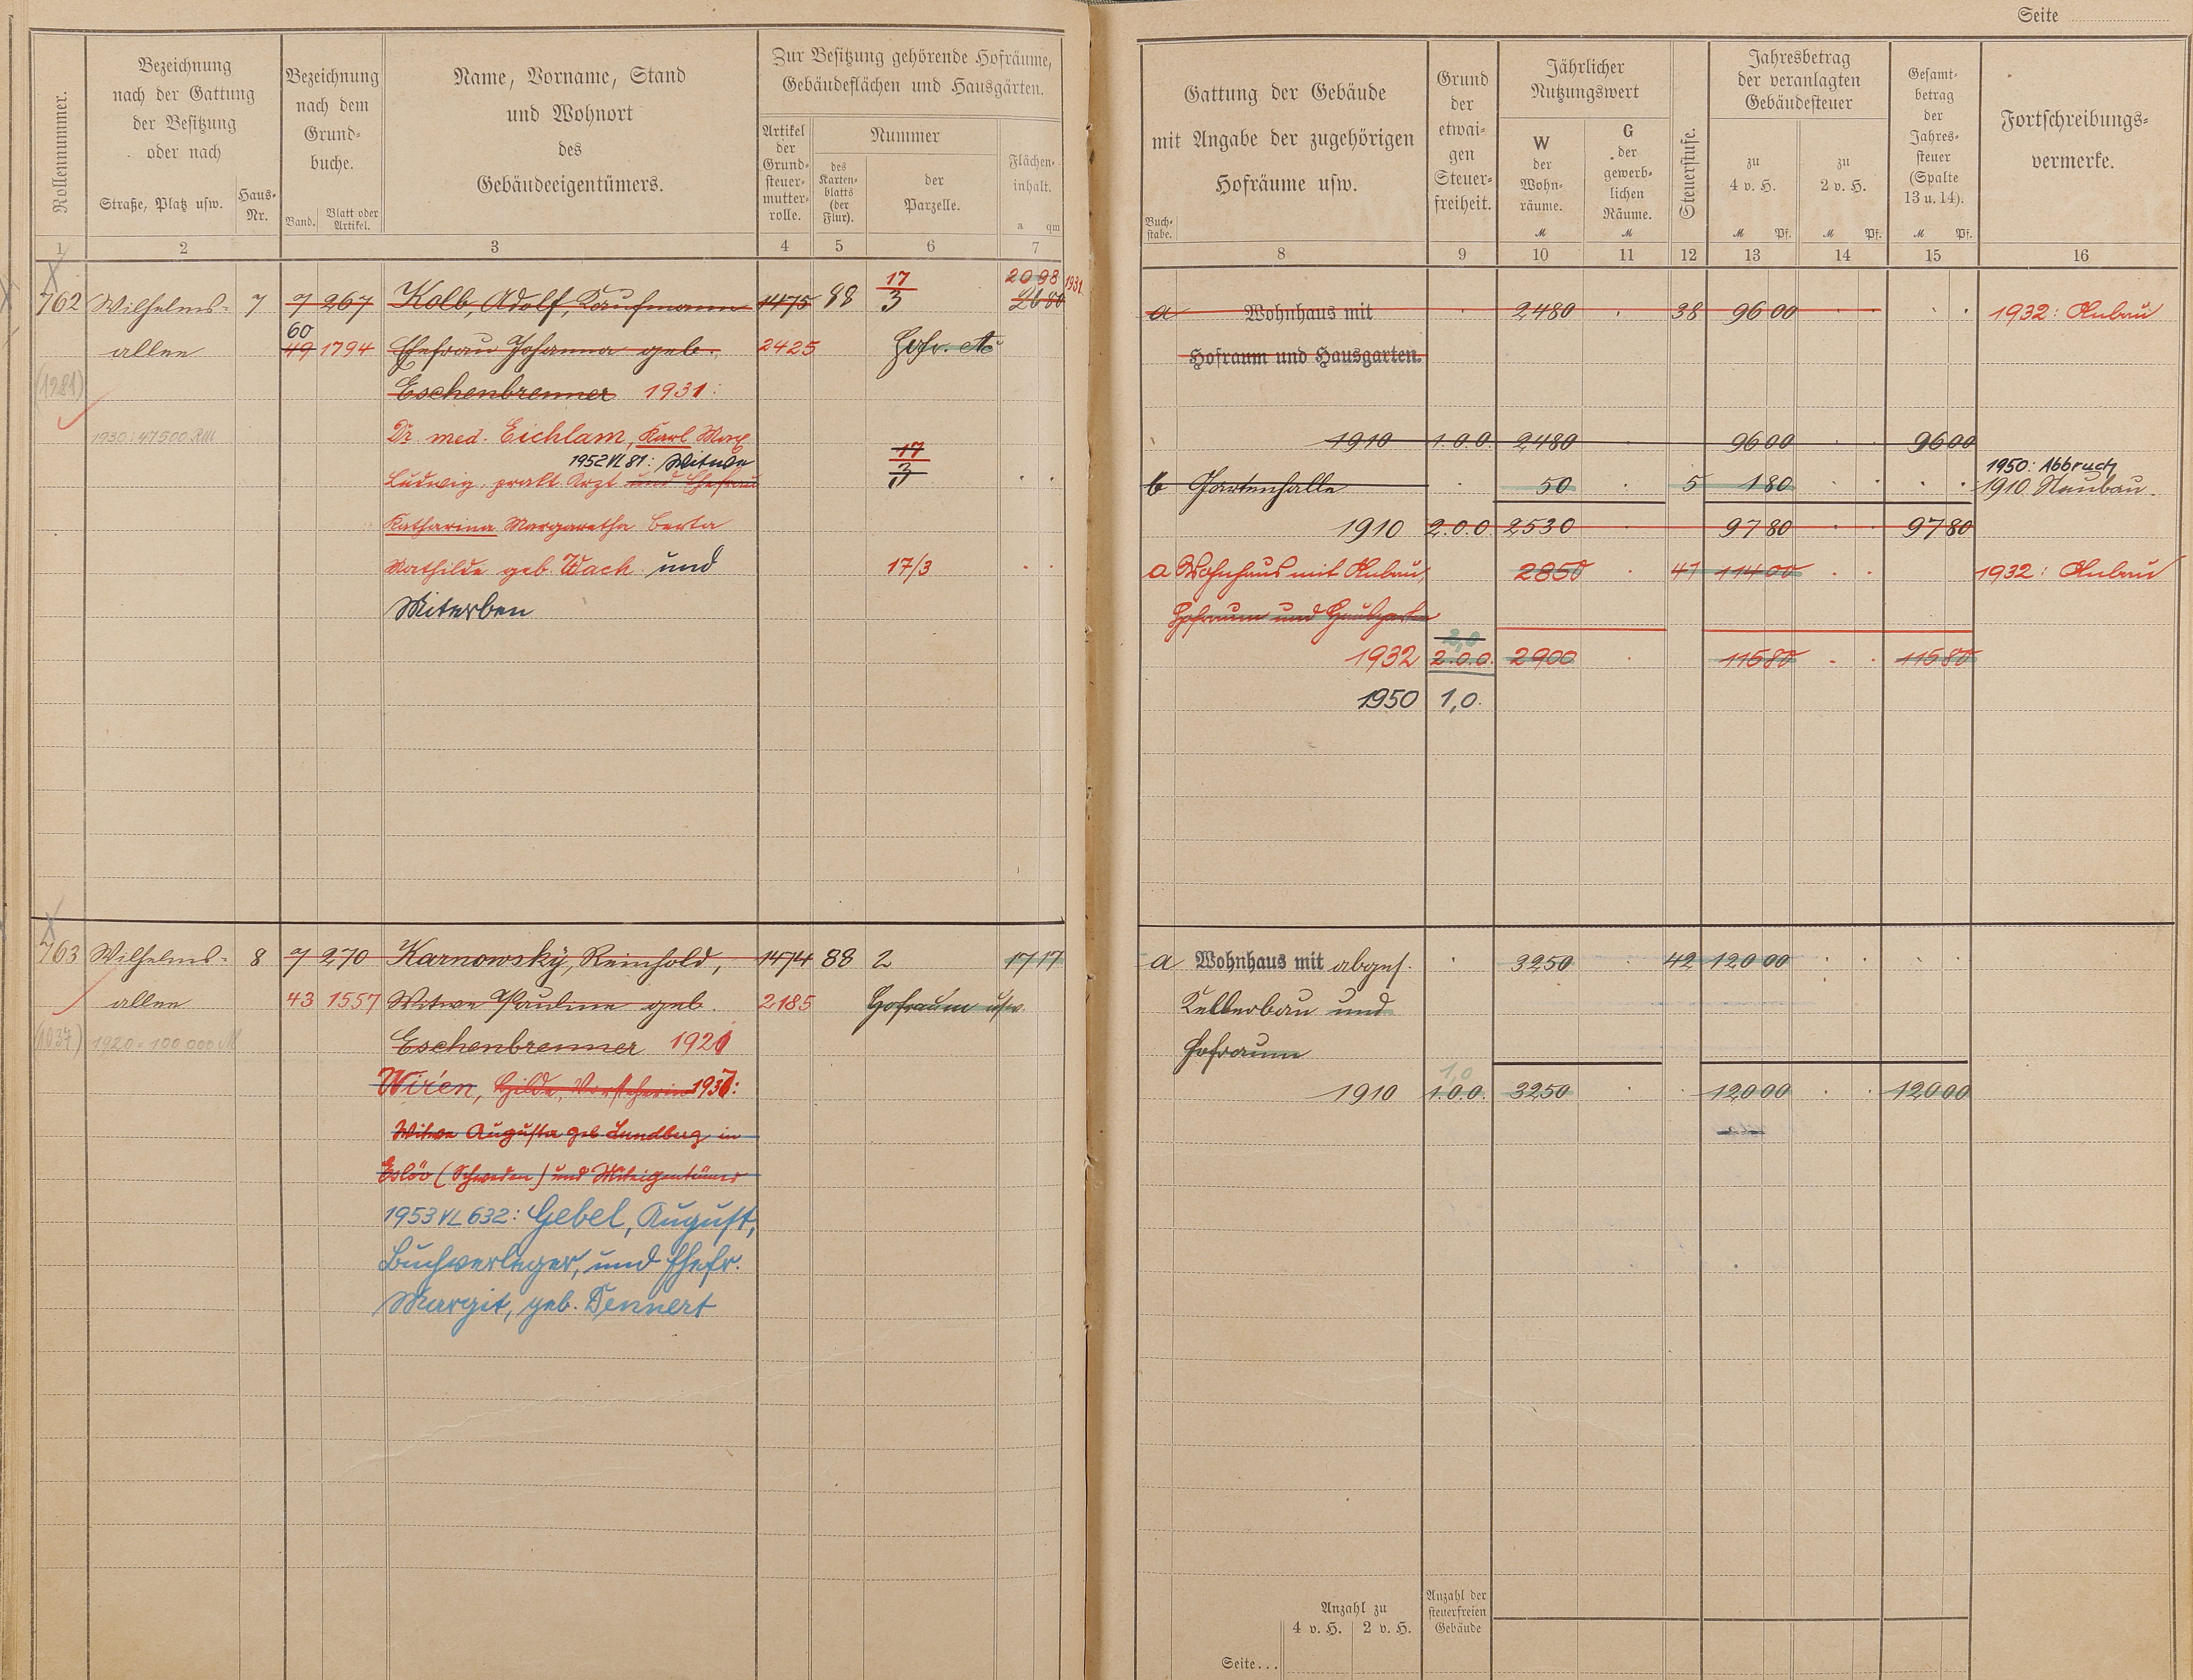 Seite
Rollennummer.
Bezeichnung
nach der Gattung
der Besitzung
oder nach
Straße, Platz usw.
Haus-
Nr.
Bezeichnung
nach dem
Grund-
buche.
Band.
Blatt oder
Artikel.
Name, Vorname, Stand
und Wohnort
des
Gebäudeeigentümers.
Zur Besitzung gehörende Hofräume,
Gebäudeflächen und Hausgärten.
Artikel
der
Grund-
steuer-
mutter-
rolle.
Nummer
des
Karten-
blatts
(der
Flur).
der
Parzelle.
Flächen-
inhalt.
a qm
Gattung der Gebäude
mit Angabe der zugehörigen
Hofräume usw.
Buch-
stabe.
Grund
der
etwai-
gen
Steuer-
freiheit.
Jährlicher
Nutzungswert
W
der
Wohn-
räume.
M
G
der
gewerb-
lichen
Räume.
M
Steuerstufe.
Jahresbetrag
der veranlagten
Gebäudesteuer
zu
4 v. H.
M Pf.
zu
2 v. H.
M Pf.
Gesamt-
betrag
der
Jahres-
steuer
(Spalte
13 u. 14).
M Pf.
Fortschreibungs-
vermerke.
1 2 3 4 5 6 7 8 9 10 11 12 13 14 15 16
17 2098 1931
762 Wilhelms- 7 7 267 Kolb, Adolf, Kaufmann 1475 88 3 2680 a Wohnhaus mit 2480 38 96 00 1932: Anbau
60
allee 49 1794 Ehefrau Johanna geb. 2425 Hofr. etc Hofraum und Hausgarten.
(1281) Eschenbrenner 1931:
1930: 47500 RM Dr. med. Eichlam, Karl Max 17 1910 1.0.0 2480 96 00 96 00
1952 VL 81: Witwe 3 1950: Abbruch
Ludwig, prakt. Arzt und Ehefrau b Gartenhalle 50 5 1 80 1910 Neubau.
Katharina Margaretha Berta 1910 2.0.0. 2530 97 80 97 80
Mathilde geb. Wach und 17/3 a Wohnhaus mit Anbau, 2850 41 114 00 1932: Anbau
Miterben Hofraum und Hausgarten
2,0
1932 2.0.0. 2900 115 80 115 80
1950 1,0.
763 Wilhelms- 8 7 270 Karnowsky, Reinhold, 1474 88 2 17 17 a Wohnhaus mit abges. 3250 42 120 00
allee 43 1557 Witwe Pauline geb. 2185 Hofraum usw. Kellerbau und
1920 = 100 000 M Eschenbrenner 1921 Hofraum
1,0
Wirén, Hilda, Vorsteherin 1937: 1910 1.0.0. 3250 120 00 120 00
Witwe Augusta geb. Lundberg in
Eslöv (Schweden) und Miteigentümer
1953 VL 632: Gebel, August,
Buchverleger, und Ehefr.
Margit, geb. Dennert
Anzahl zu
4 v. H. 2 v. H.
Anzahl der
steuerfreien
Gebäude
Seite...